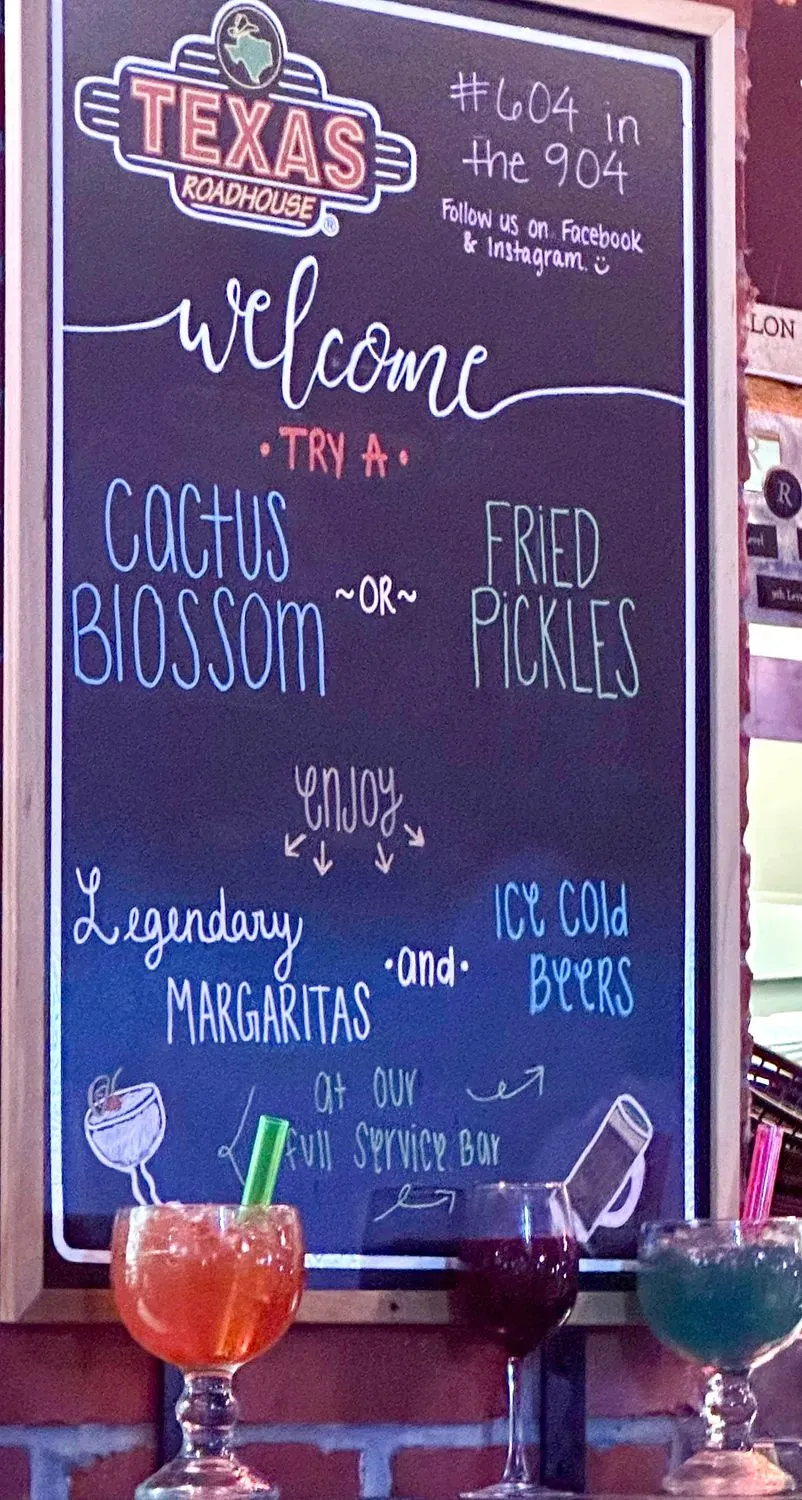 TEXAS
ROADHOUSE
®
#604 in
the 904
Follow us on Facebook
& Instagram.
welcome
• TRY A •
CACTUS
BLOSSOM
~OR~
FRiED
PiCKLES
enjoy
Legendary
MARGARITAS
•and•
ICE COld
BEERS
at our
full Service Bar
LON
R
R